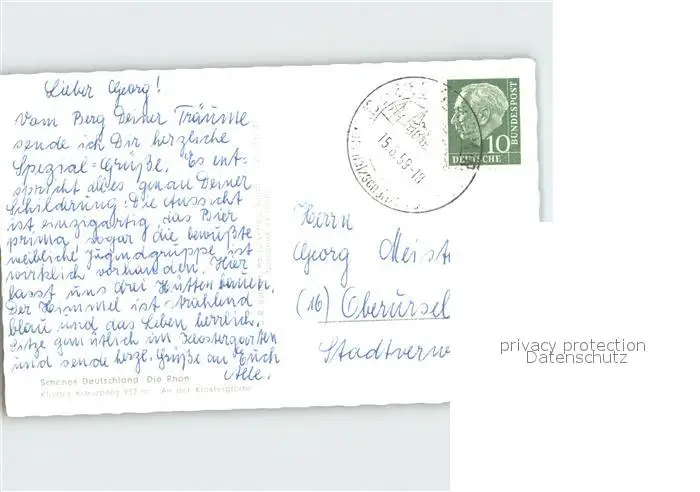 Lieber Georg!
Vom Berg Deiner Träume
sende ich Dir herzliche
Spezial=Grüße. Es ent-
spricht alles genau Deiner
Schilderung: Die Aussicht
ist einzigartig, das Bier
prima, sogar die bewußte
weibliche Jugendgruppe ist
wirklich vorhanden. Hier
lasst uns drei Hütten bauen.
Der Himmel ist strahlend
blau und das Leben herrlich.
Sitze gemütlich im Klostergarten
und sende herzl. Grüße an Euch
Alle.
Schönes Deutschland Die Rhön
Kloster Kreuzberg 932 m An der Klosterpforte
15.8.59-18
10
DEUTSCHE
BUNDESPOST
Herrn
Georg Meist
(16) Oberursel
Stadtverw
privacy protection
Datenschutz